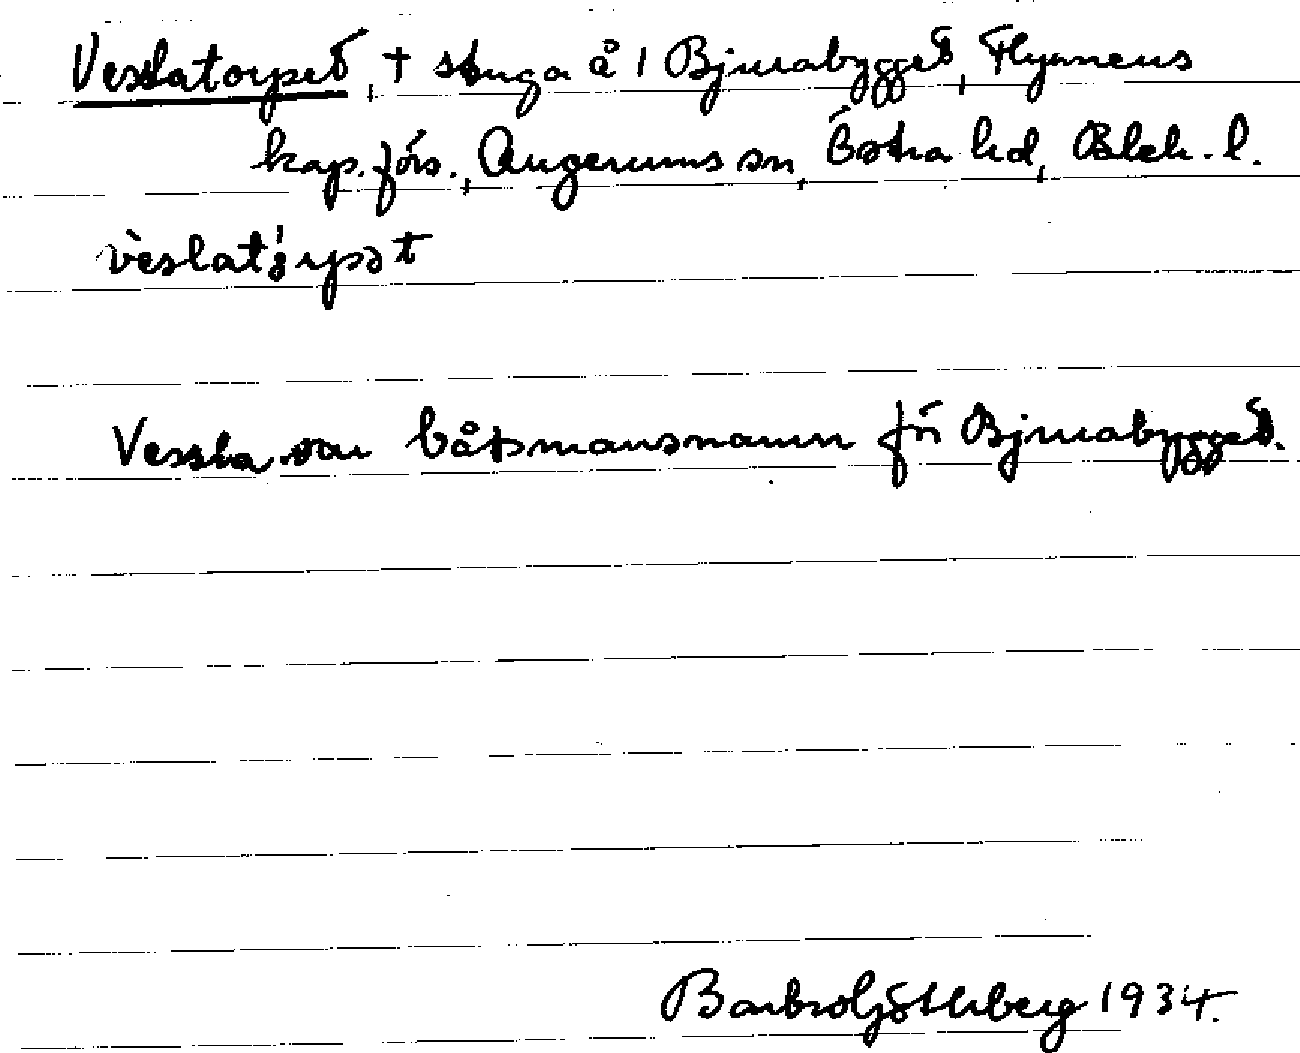 Vesslatorpet, † stuga å 1 Bjurabygget, Flymens
kap.förs., Augerums sn, Östra hd, Blek. l.
Vessla var båtsmansnamn för Bjurabygget.
1934.